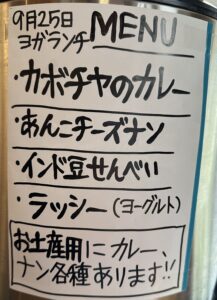 9月25日
ヨガランチ MENU
・カボチャのカレー
・あんこチーズナン
・インド豆せんべい
・ラッシー(ヨーグルト)
お土産用にカレー、
ナン各種あります!!